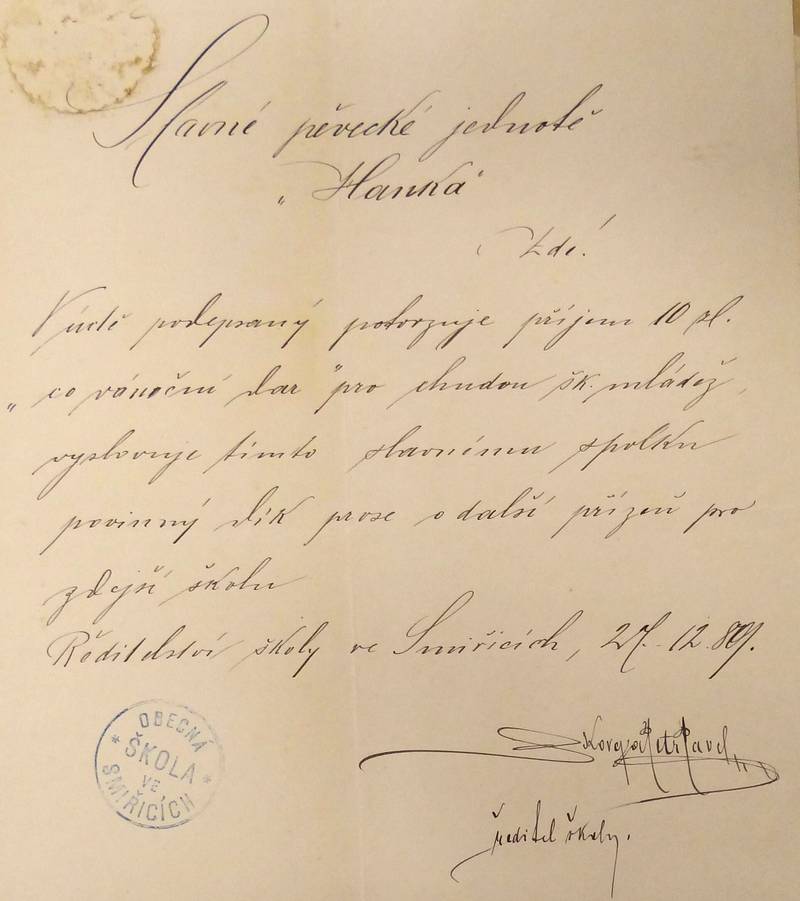 Slavné pěvecké jednotě
„Hanka“
Zdé!
V úctě podepsaný potvrzuje příjem 10 zl.
„co vánoční dar“ pro chudou šk. mládež,
vyslovuje tímto slavnému spolku
povinný dík prose o další přízeň pro
zdejší školu
Ředitelství školy ve Smiřicích, 27. 12. 89.
Petr Pavel
ředitel školy.
OBECNÁ
* ŠKOLA *
VE
SMIŘICÍCH